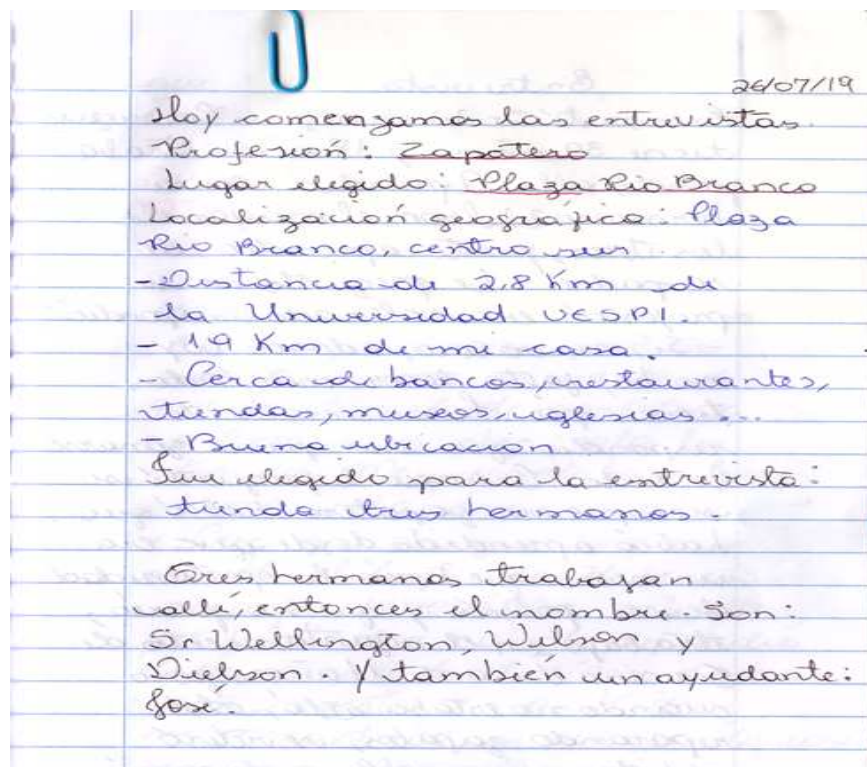 26/07/19
Hoy comenzamos las entrevistas.
Profesión: Zapatero
Lugar elegido: Plaza Rio Branco
Localización geográfica: Plaza
Rio Branco, centro sur.
- Distancia de 2,8 Km de
la Universidad UESPI.
- 19 Km de mi casa.
- Cerca de bancos, restaurantes,
tiendas, museos, iglesias...
- Buena ubicación
Fue elegido para la entrevista:
tienda tres hermanos.
Tres hermanos trabajan
allí, entonces el nombre. Son:
Sr Wellington, Wilson y
Dielson. Y también un ayudante:
José.